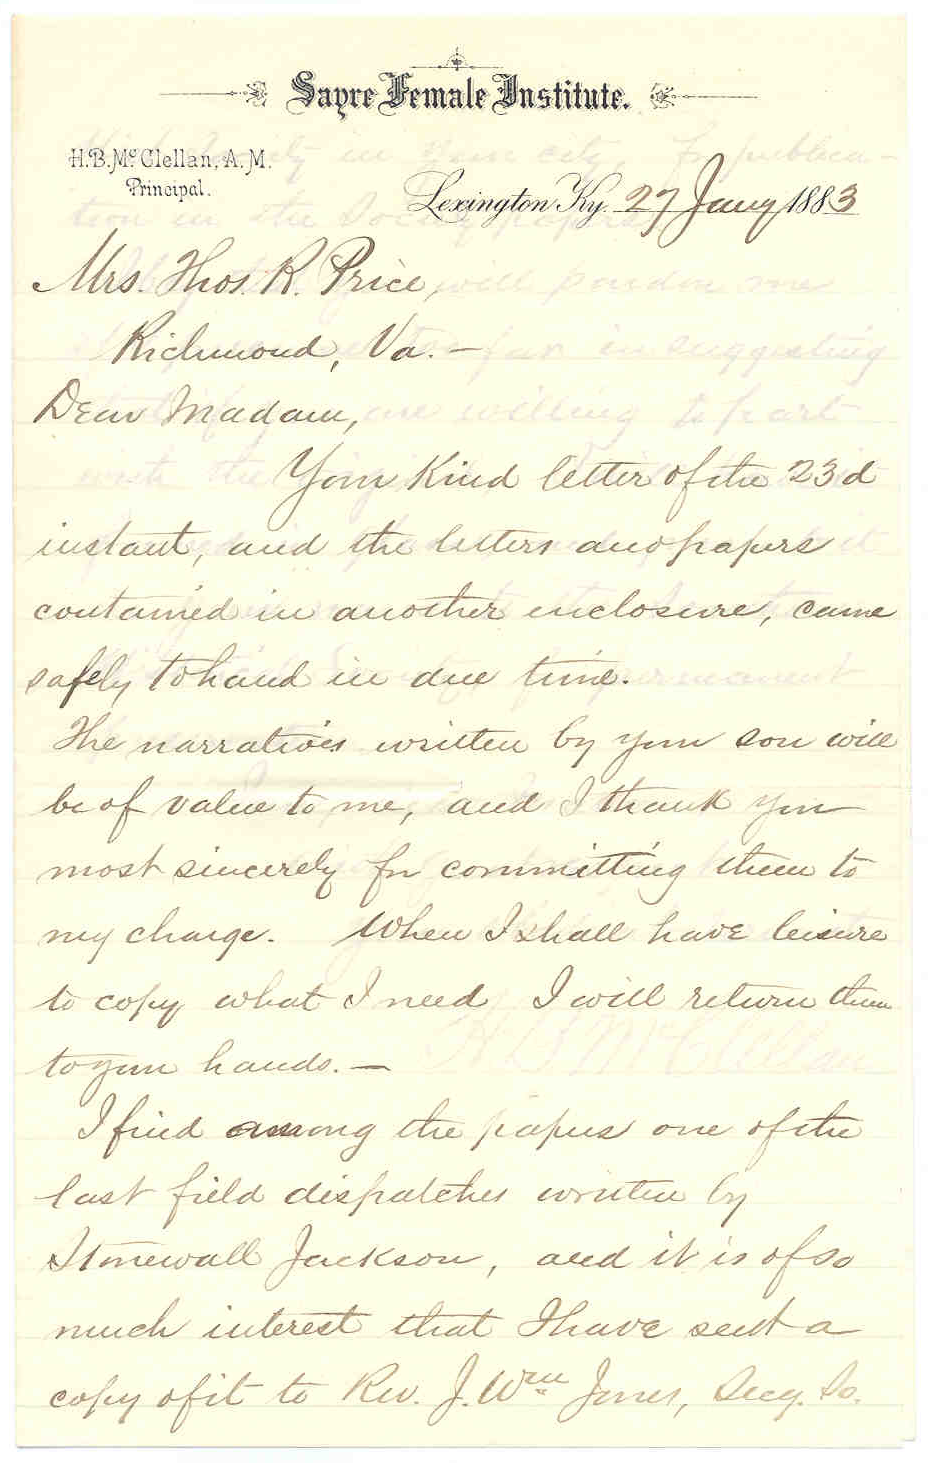 Sayre Female Institute.
H.B. McClellan, A.M.
Principal.
Lexington Ky. 27 Jany 1883
Mrs. Thos. R. Price,
Richmond, Va. —
Dear Madam,
Your kind letter of the 23d
instant, and the letters and papers
contained in another inclosure, came
safely to hand in due time.
The narratives written by your son will
be of value to me, and I thank you
most sincerely for committing them to
my charge. When I shall have leisure
to copy what I need I will return them
to your hands. —
I find among the papers one of the
last field dispatches written by
Stonewall Jackson, and it is of so
much interest that I have sent a
copy of it to Rev. J. Wm Jones, Secy. So.